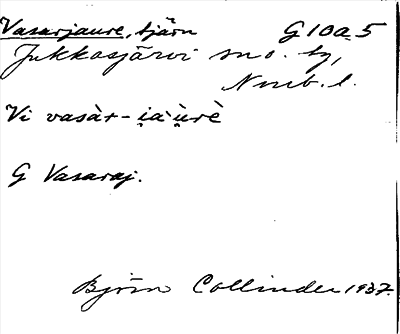 Vasarjaure, tjärn G10a5
Jukkasjärvi sno. ly,
Nbnb. l.
Vi vasàr-i̯au̯rè
G Vasaraj.
Björn Collinder 1937.